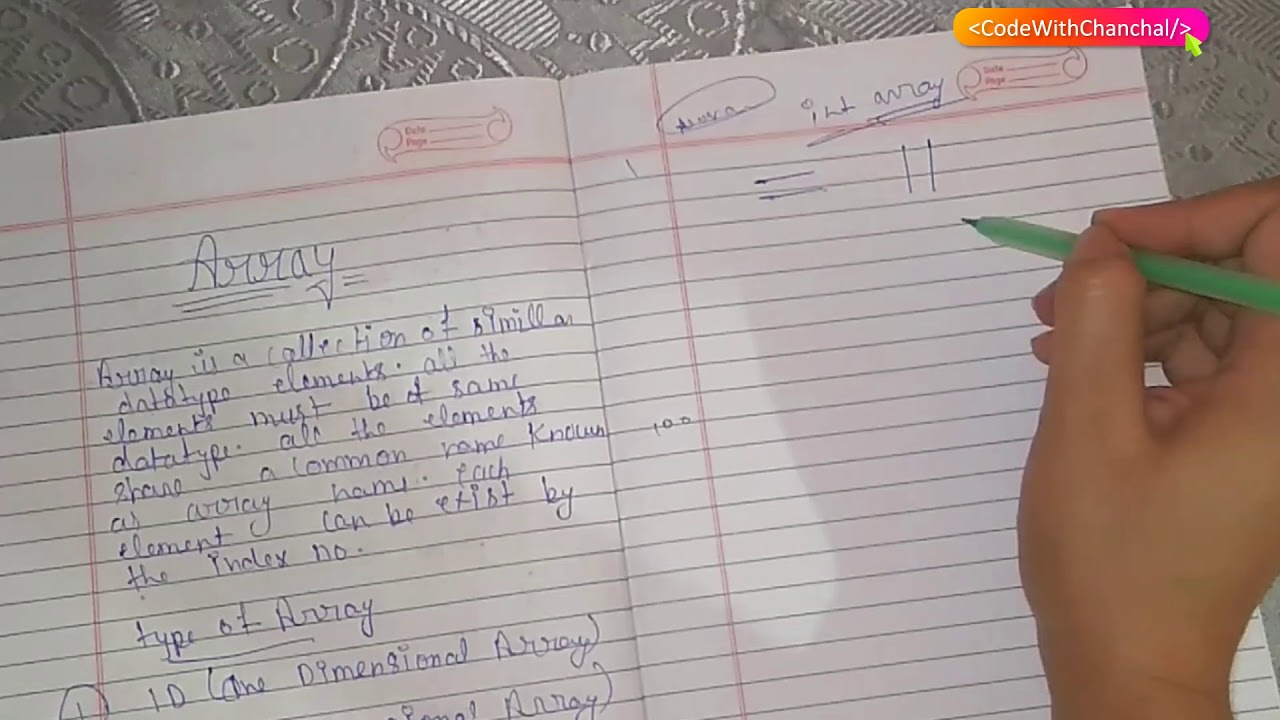 <CodeWithChanchal/>
Date
Page
int array
Date
Page
Array
Array is a collection of simillar
datatype elements. all the
elements must be of same
datatype. all the elements
Share a common name Known
as array name. each
element can be exist by
the index no.
100
type of Array
1 1D (One Dimensional Array)
ional Array)